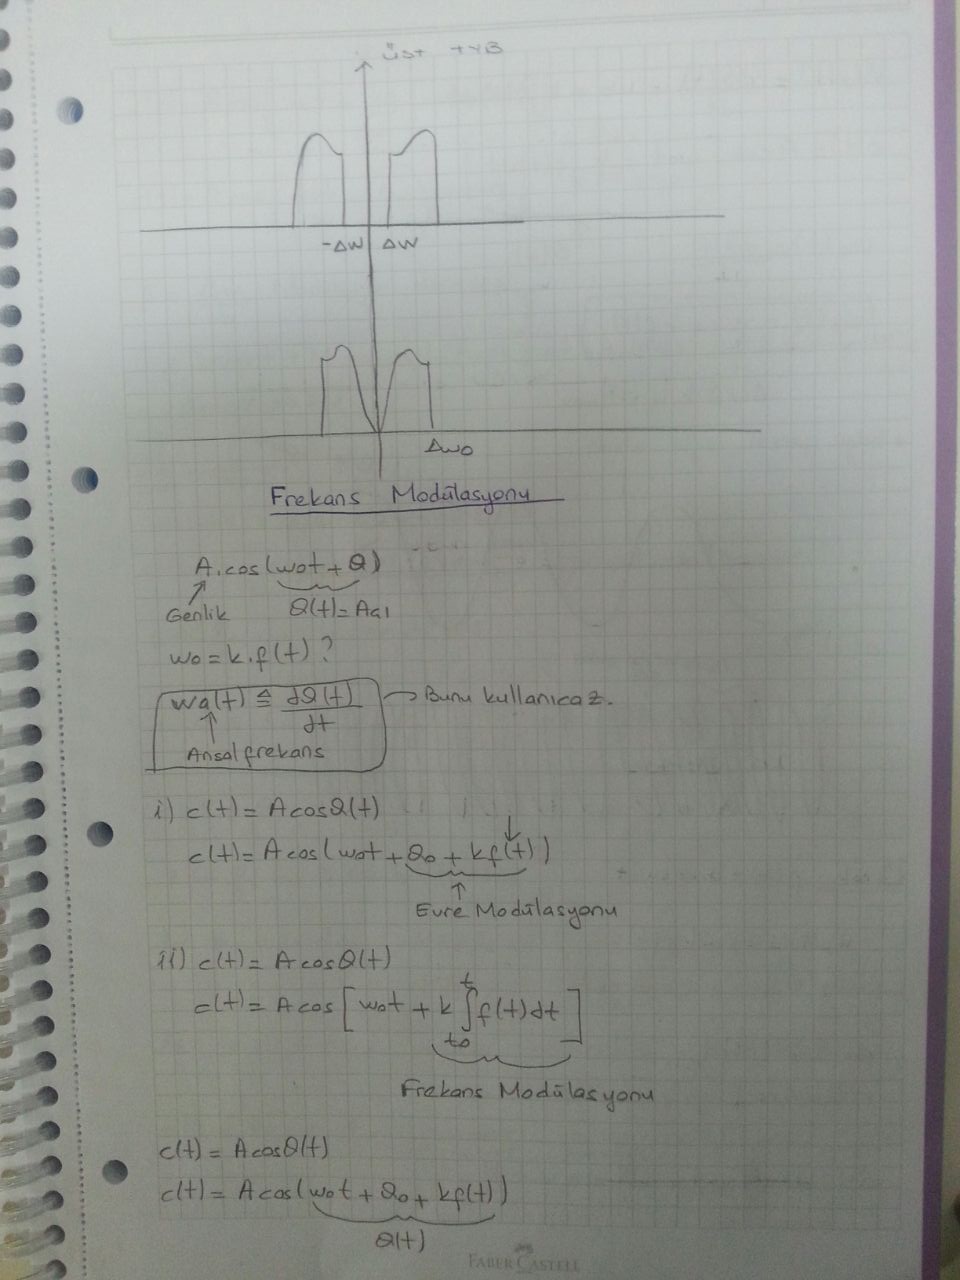 üst TYB
-Δw Δw
Δwo
Frekans Modülasyonu
A.cos(wot+θ)
Genlik θ(t)=Açı
wo=k.f(t)?
wa(t) ≜ dθ(t)/dt → Bunu kullanıcaz.
Ansal frekans
i) c(t)= Acosθ(t)
c(t)= A cos(wot+θo+kf(t))
Evre Modülasyonu
ii) c(t)= A cosθ(t)
c(t)= A cos[wot + k∫to^t f(t)dt]
Frekans Modülasyonu
c(t)= Acosθ(t)
c(t)= A cos(wot + θo + kf(t))
θ(t)
FABER CASTELL